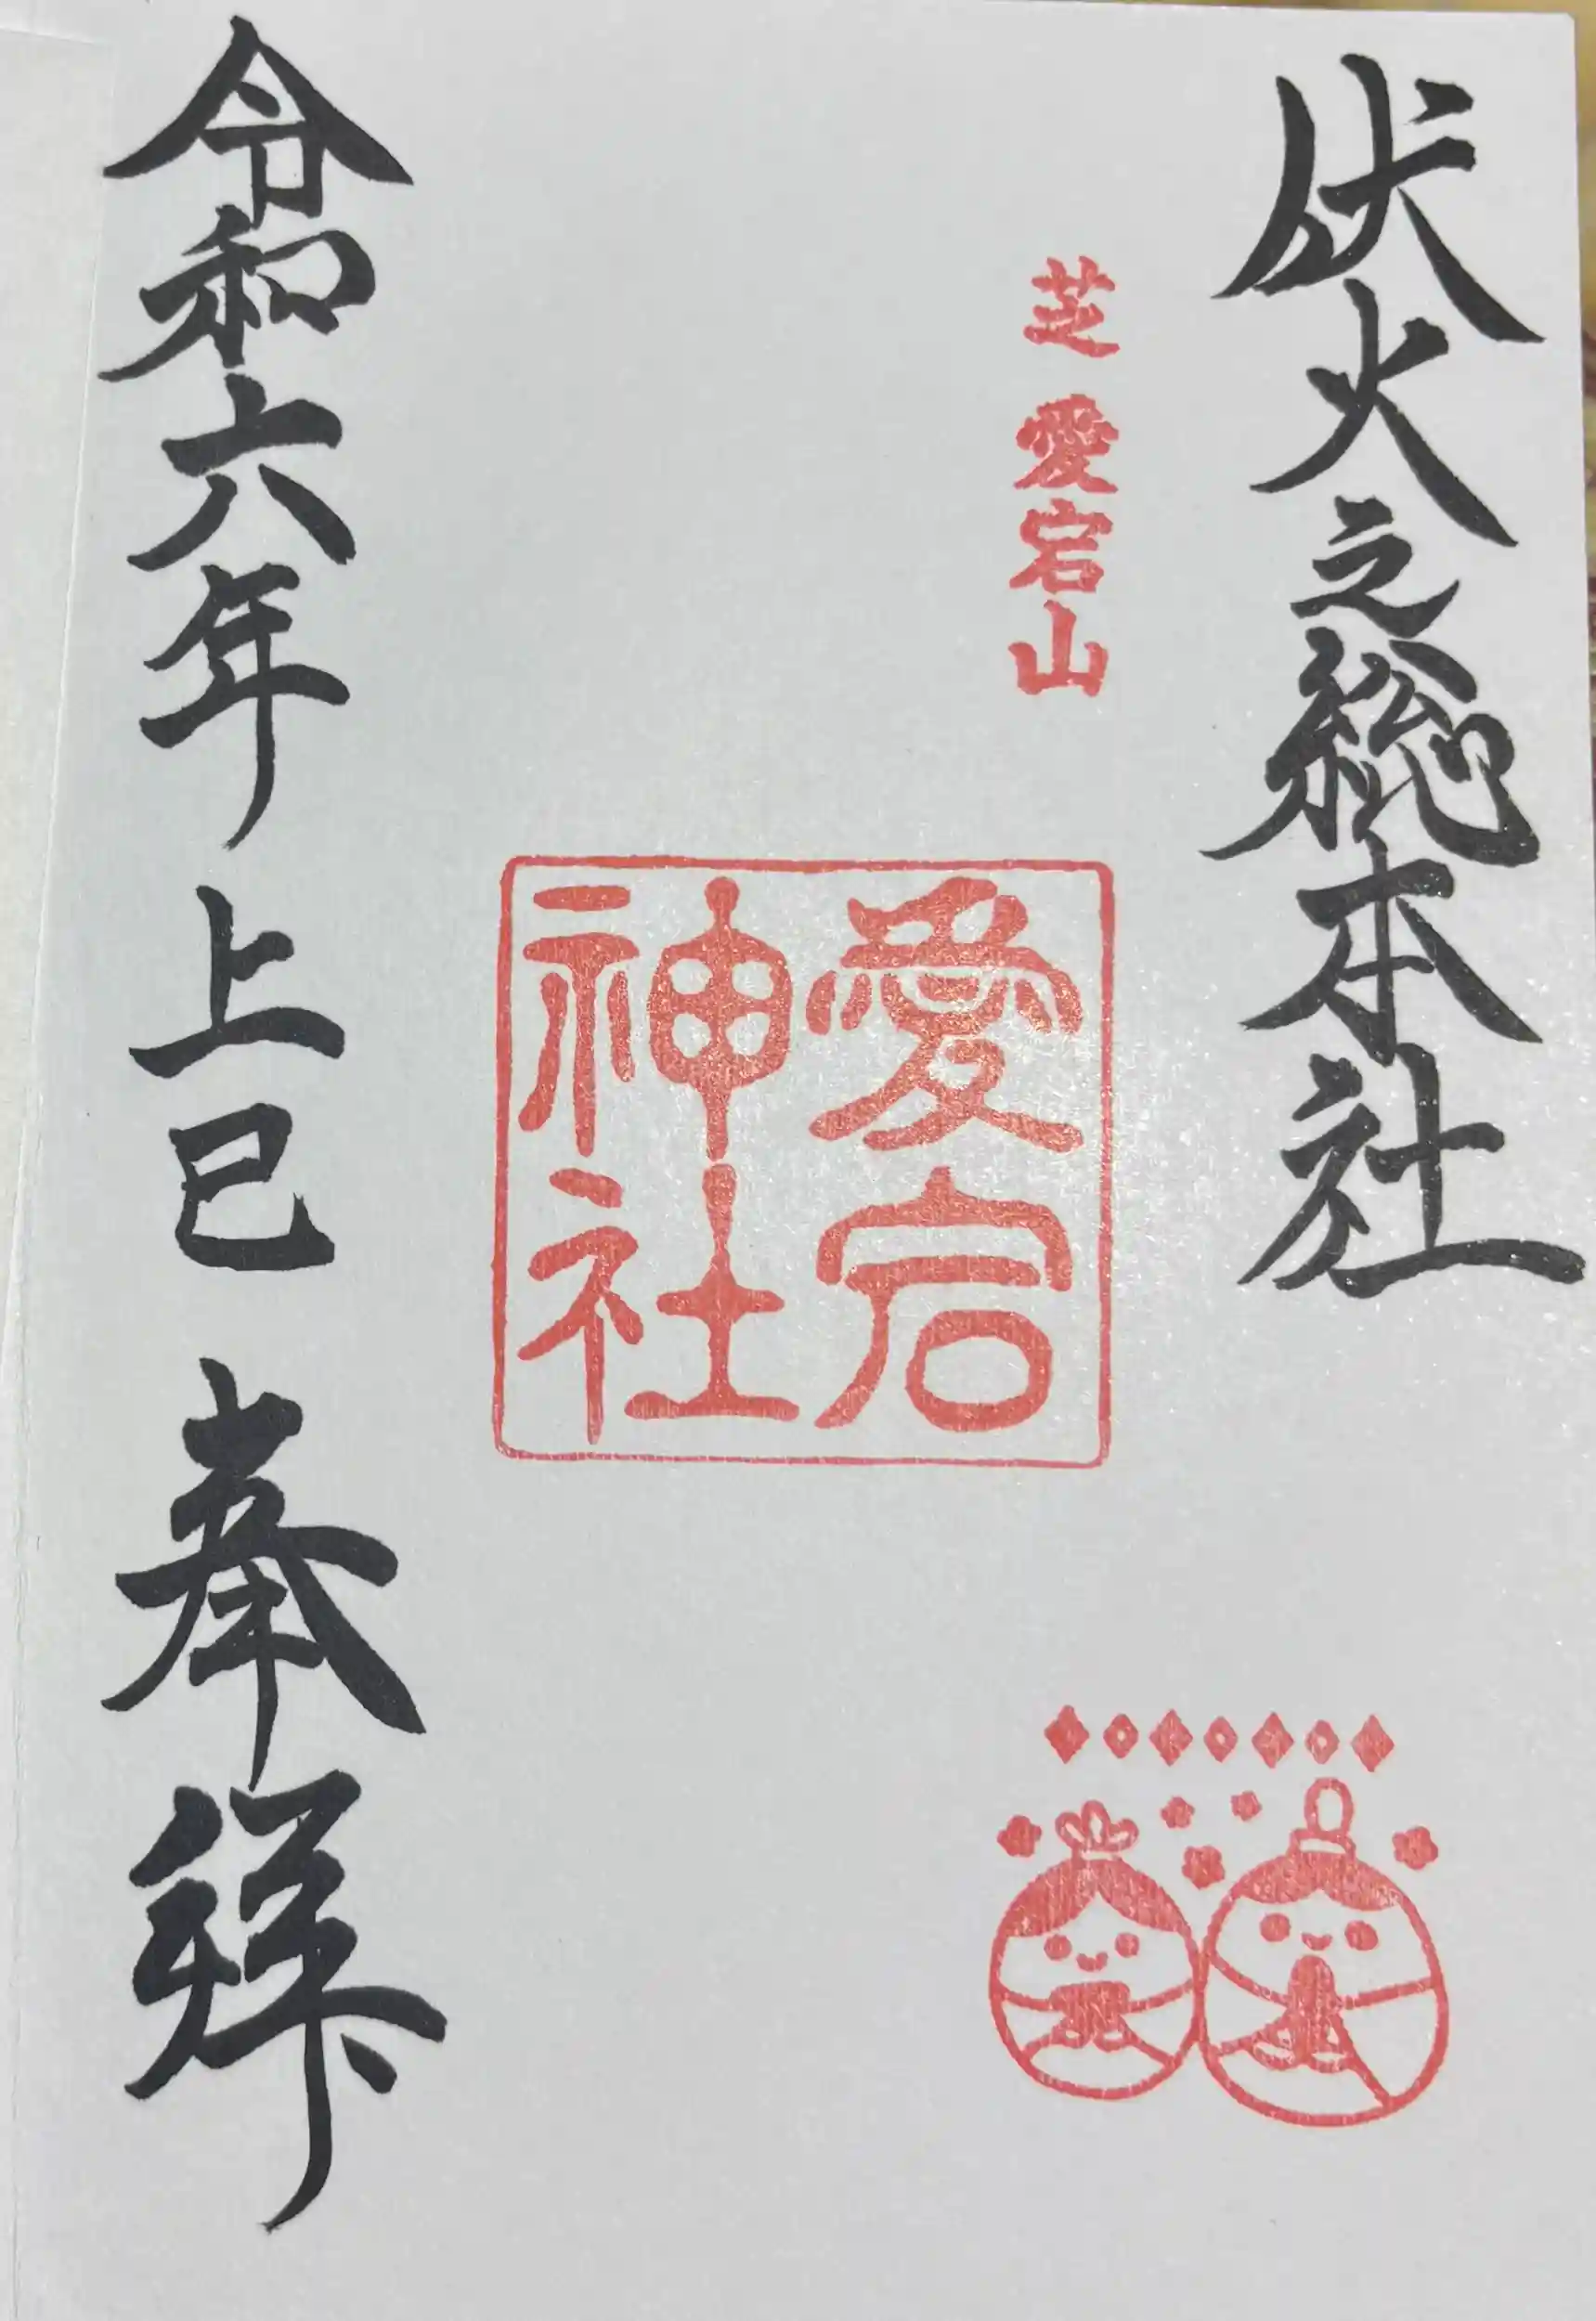 伏火之総本社
芝 愛宕山
愛宕
神社
令和六年 上巳 奉拝